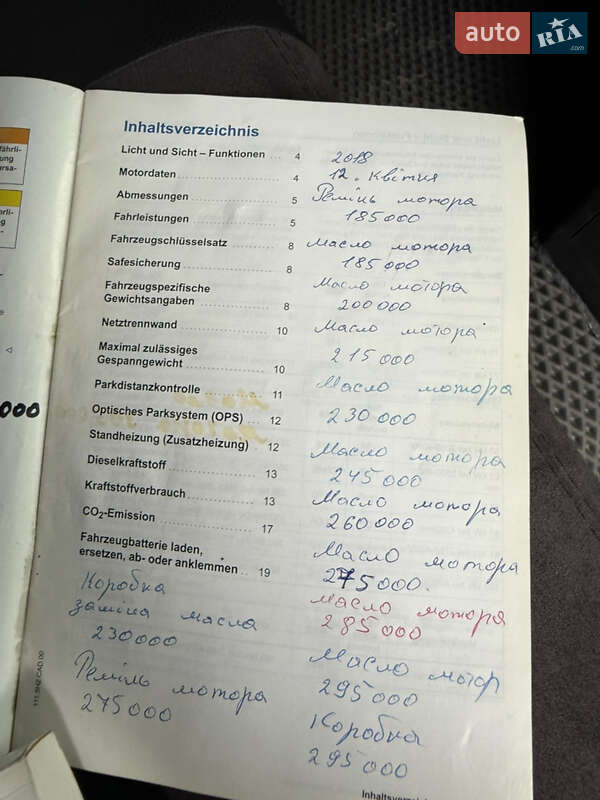 auto RIA .com
Inhaltsverzeichnis
Licht und Sicht – Funktionen ... 4
Motordaten ... 4
Abmessungen ... 5
Fahrleistungen ... 5
Fahrzeugschlüsselsatz ... 8
Safesicherung ... 8
Fahrzeugspezifische
Gewichtsangaben ... 8
Netztrennwand ... 10
Maximal zulässiges
Gespanngewicht ... 10
Parkdistanzkontrolle ... 11
Optisches Parksystem (OPS) ... 12
Standheizung (Zusatzheizung) . 12
Dieselkraftstoff ... 13
Kraftstoffverbrauch ... 13
CO2-Emission ... 17
Fahrzeugbatterie laden,
ersetzen, ab- oder anklemmen .. 19
Коробка
заміна масла
230000
Ремінь мотора
275000
2018
12. квітня
Ремінь мотора
185000
Масло мотора
185000
Масло мотора
200000
Масло мотора
215000
Масло мотора
230000
Масло мотора
245000
Масло мотора
260000
Масло мотора
275000.
Масло мотора
285000
Масло мотор
295000
Коробка
295000
000